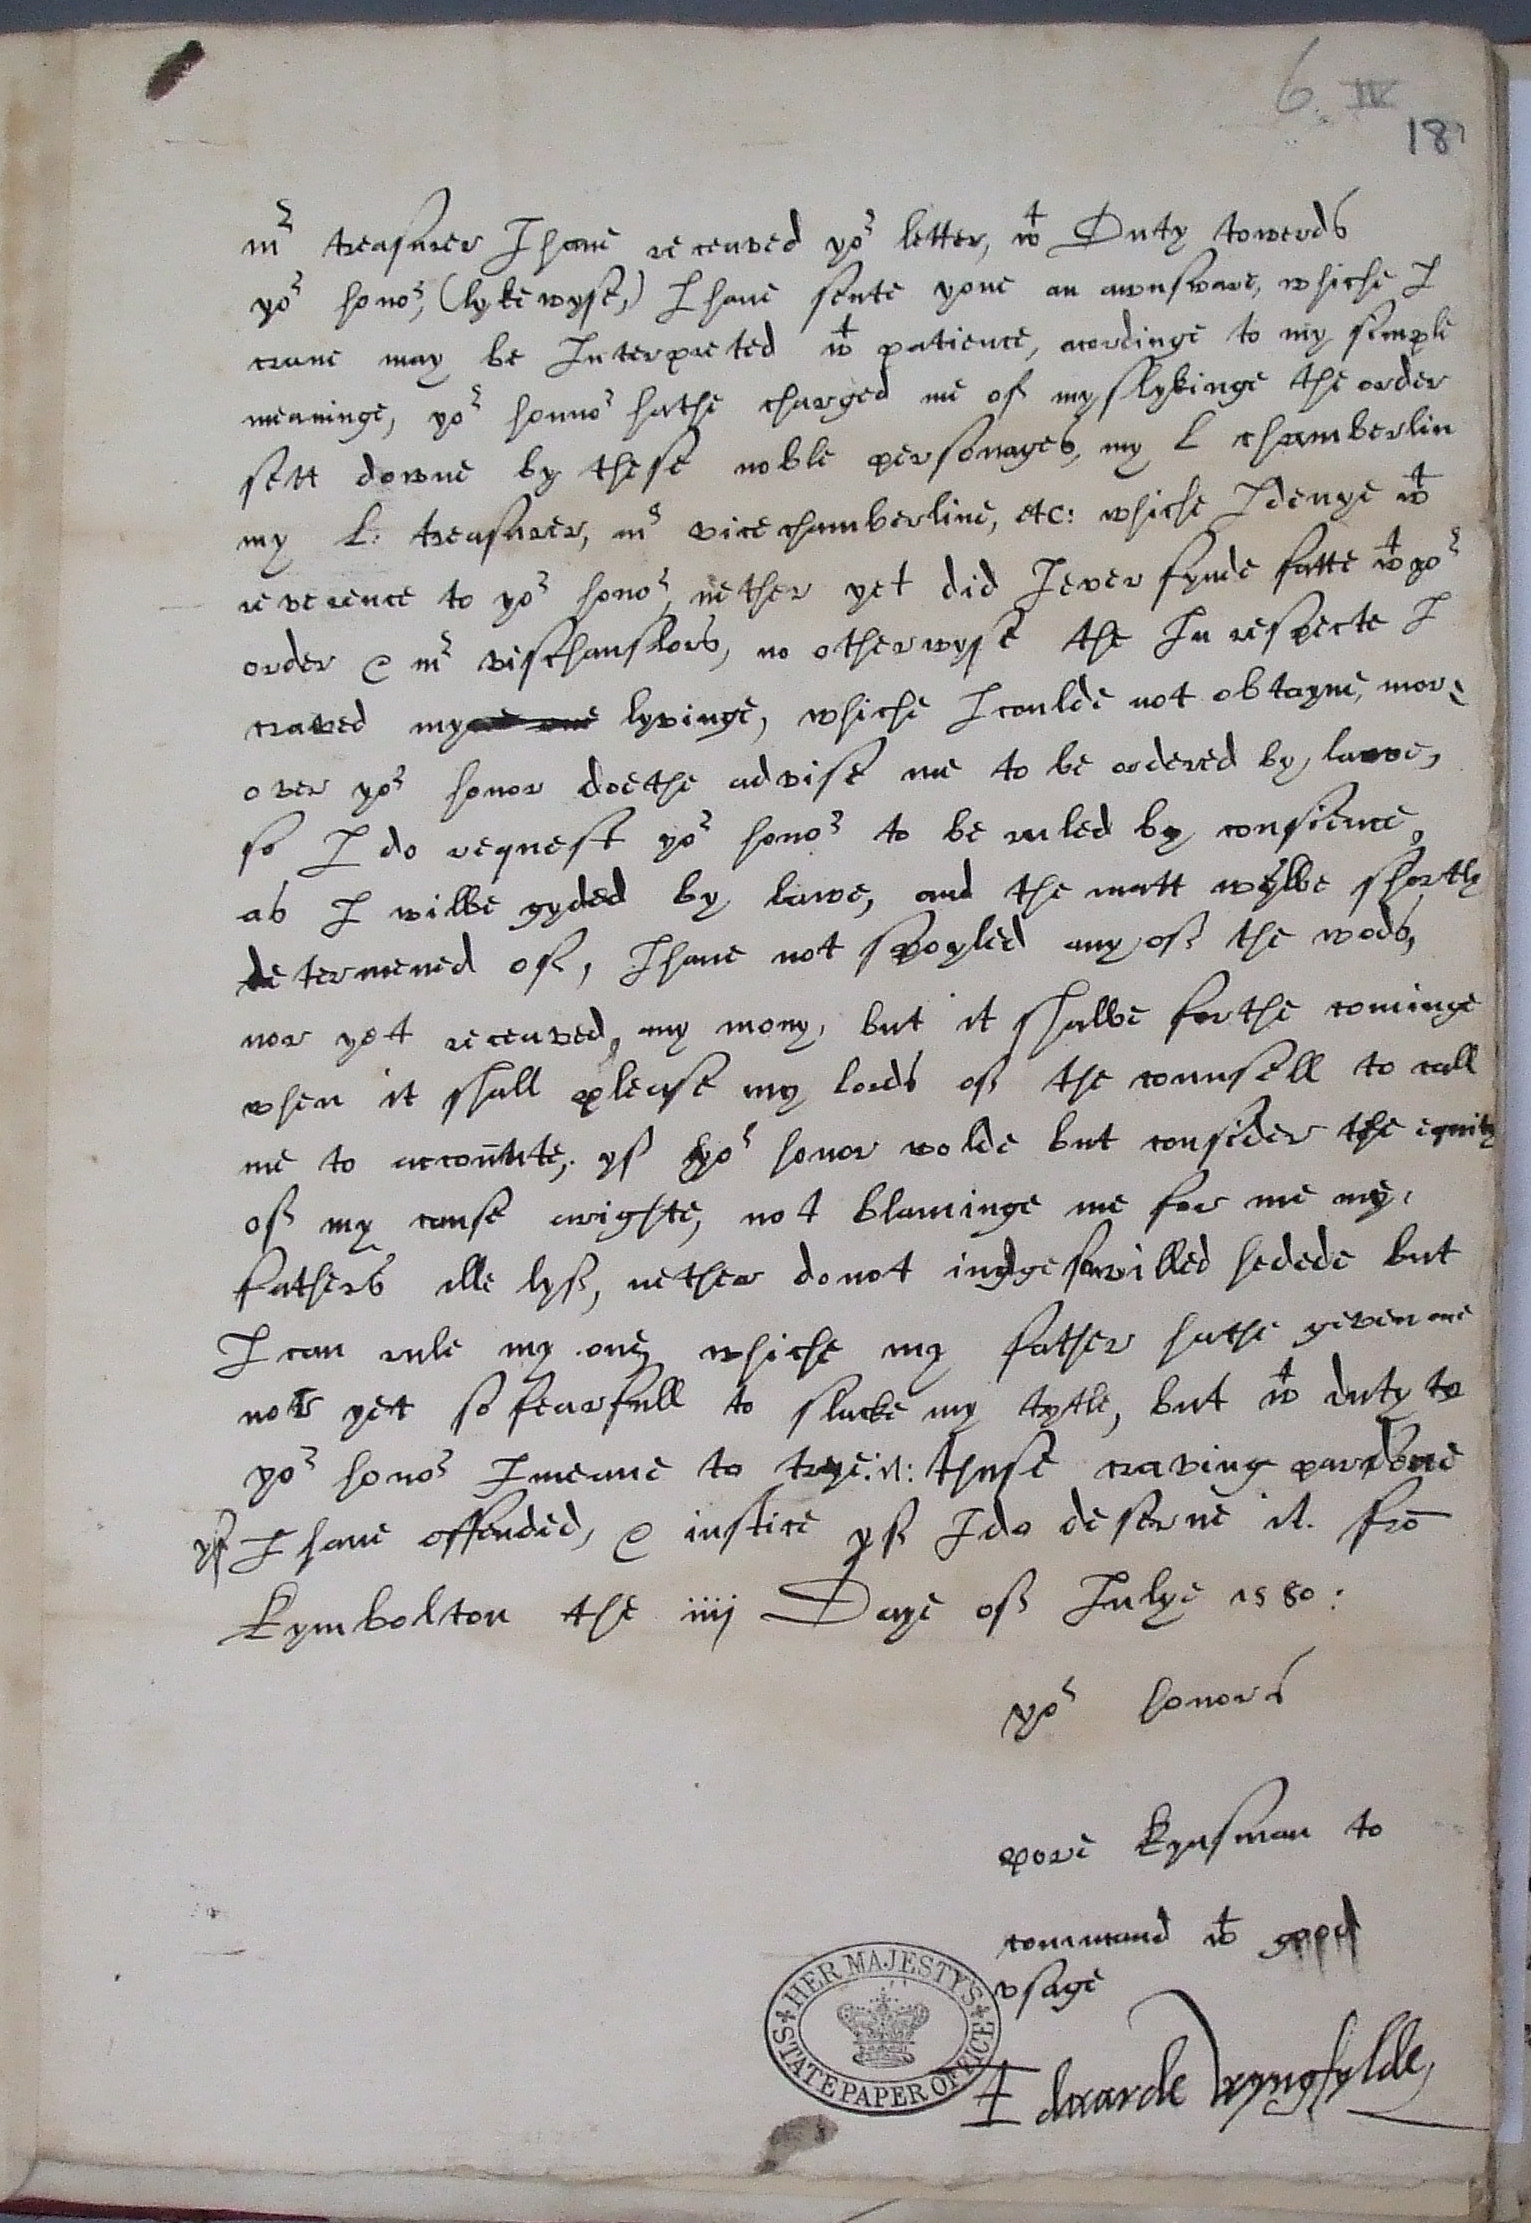 6. IV
187
mr treasurer I haue receaued yor letter, wt Duty towerds
yor honor, (lykewyse,) I haue sente youe an awnsware, whiche I
craue may be Interpreted wt patience, acordinge to my simple
meaninge, yor honnor hathe charged me of myslykinge the order
sett downe by these noble personages, my L chamberlin
my L: treasurer, mr vicechamberline, etc: whiche I denye wt
reverence to yor honor, nether yet did I ever fynde fatte wt yor
order & mr vischanslors, no otherwyse the In respecte I
craved my lyvinge, whiche I coulde not obtayne, mor
over yor honor doethe advise me to be ordered by lawe,
so I do request yor honor to be ruled by consience,
as I wilbe gyded by lawe, and the matt wylbe shortly
determened of, I haue not spoyled any of the wods,
nor yet receaved any mony, but it shalbe forthe cominge
when it shall please my lords of the counsell to call
me to accounte, yf yor honor wolde but consider the equity
of my cause arighte, not blaminge me for me my
fathers ille lyf, nether do not iudge sowilled hedede but
I can rule my one whiche my father hathe geven me
nor yet so fearfull to slacke my tytle, but wt duty to
yor honor I meane to trye it: thuse craving pardone
yf I haue offended, & iustice yf I do deserue it. fro
Kymbolton the iiij Daye of Iulye 1580:
yor honors
pore Kynsman to
command wt good
vsage
Edwarde Wyngfylde
HER MAJESTY'S STATE PAPER OFFICE